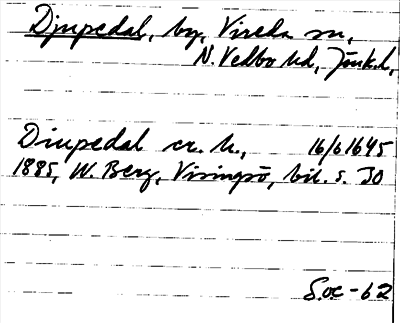 Djupedal, by, Vireda sn,
N. Vedbo hd, Jönk.l,
Diupedal cr. h., 16/6 1645
1885, W. Berg, Visingsö, bil. s. 30
S.oc -62